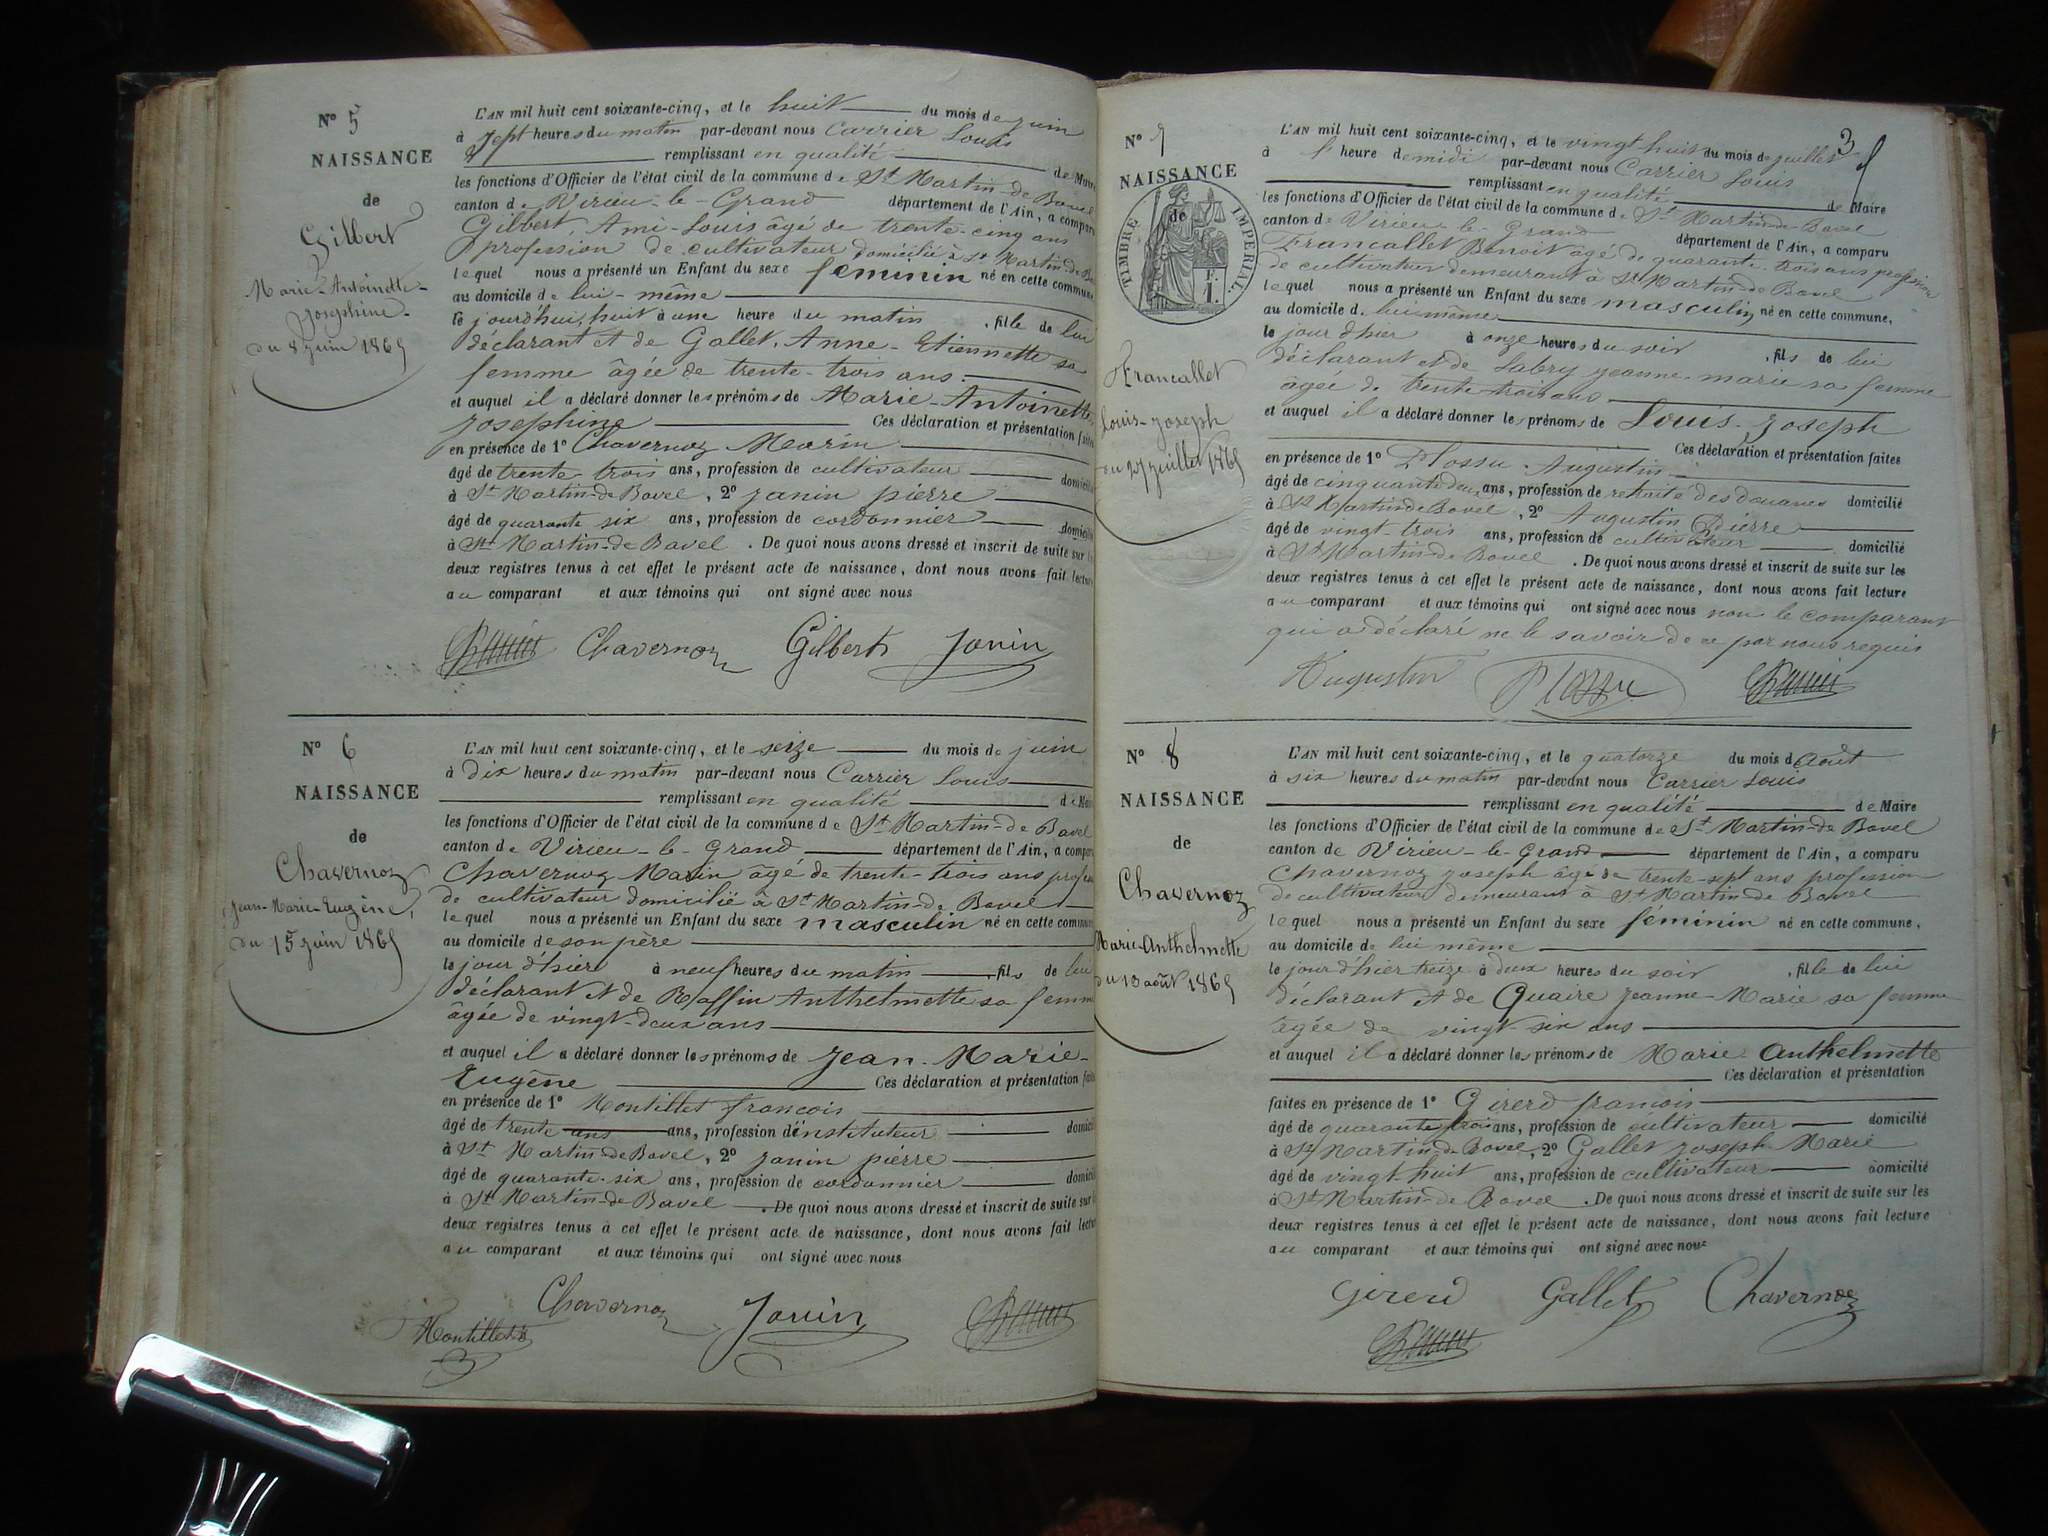 N° 5
NAISSANCE
de
Gilbert
Marie-Antoinette-
Josephine.
du 8 juin 1865
L'AN mil huit cent soixante-cinq, et le huit du mois de juin
à sept heures du matin par-devant nous Carrier Louis
remplissant en qualité de Maire
les fonctions d'Officier de l'état civil de la commune de St Martin-de Bavel
canton de Virieu-le-Grand département de l'Ain, a comparu
Gilbert, Ami-Louis âgé de trente-cinq ans
profession de cultivateur domicilié à St Martin-de Ba
lequel nous a présenté un Enfant du sexe feminin né en cette commune
au domicile de lui-même
le jourd'hui, huit à une heure du matin, fille de lui
déclarant et de Gallet, Anne-Etiennette sa
femme âgée de trente-trois ans.
et auquel il a déclaré donner les prénoms de Marie-Antoinette
Josephine Ces déclaration et présentation faites
en présence de 1° Chavernoz Marin
âgé de trente-trois ans, profession de cultivateur domicilié
à St Martin-de Bavel, 2° Janin pierre
âgé de quarante six ans, profession de cordonnier domicilié
à St Martin-de Bavel. De quoi nous avons dressé et inscrit de suite sur les
deux registres tenus à cet effet le présent acte de naissance, dont nous avons fait lecture
au comparant et aux témoins qui ont signé avec nous
Chavernoz Gilbert Janin
N° 6
NAISSANCE
de
Chavernoz
Jean-Marie-Eugène,
du 15 juin 1865
L'AN mil huit cent soixante-cinq, et le seize du mois de juin
à dix heures du matin par-devant nous Carrier Louis
remplissant en qualité de Maire
les fonctions d'Officier de l'état civil de la commune de St Martin-de Bavel
canton de Virieu-le-Grand département de l'Ain, a comparu
Chavernoz Marin âgé de trente-trois ans profes
de cultivateur domicilié à St Martin-de Bavel
lequel nous a présenté un Enfant du sexe masculin né en cette commune
au domicile de son père
le jour d'hier à neuf heures du matin, fils de lui
déclarant et de Raffin Anthelmette sa femme
âgée de vingt-deux ans
et auquel il a déclaré donner les prénoms de Jean-Marie-
Eugène Ces déclaration et présentation faites
en présence de 1° Montillet françois
âgé de trente ans ans, profession d'instituteur domicilié
à St Martin-de Bavel, 2° Janin pierre
âgé de quarante-six ans, profession de cordonnier domicilié
à St Martin-de Bavel. De quoi nous avons dressé et inscrit de suite sur les
deux registres tenus à cet effet le présent acte de naissance, dont nous avons fait lecture
au comparant et aux témoins qui ont signé avec nous
Chavernoz Janin
Montillet
3
N° 7
NAISSANCE
de
TIMBRE IMPERIAL.
F.
1.
Francallet
Louis-Joseph
du 27 juillet 1865
L'AN mil huit cent soixante-cinq, et le vingt-huit du mois de juillet
à heure de midi par-devant nous Carrier Louis
remplissant en qualité de Maire
les fonctions d'Officier de l'état civil de la commune de St Martin-de-Bavel
canton de Virieu-le-Grand département de l'Ain, a comparu
Francallet Benoit âgé de quarante-trois ans profession
de cultivateur demeurant à St Martin de Bavel
lequel nous a présenté un Enfant du sexe masculin né en cette commune,
au domicile de lui même
le jour d'hier à onze heures du soir, fils de lui
déclarant et de Labry Jeanne-marie sa femme
âgée de trente-trois ans
et auquel il a déclaré donner les prénoms de Louis-Joseph
Ces déclaration et présentation faites
en présence de 1° Plossu Augustin
âgé de cinquante deux ans, profession de retraité des douanes domicilié
à St Martin de Bavel, 2° Augustin Pierre
âgé de vingt-trois ans, profession de cultivateur domicilié
à St Martin-de Bavel. De quoi nous avons dressé et inscrit de suite sur les
deux registres tenus à cet effet le présent acte de naissance, dont nous avons fait lecture
au comparant et aux témoins qui ont signé avec nous non le comparant
qui a déclaré ne le savoir de ce par nous requis
Augustin Plossu
N° 8
NAISSANCE
de
Chavernoz
Marie-Anthelmette
du 13 août 1865
L'AN mil huit cent soixante-cinq, et le quatorze du mois d'août
à six heures du matin par-devant nous Carrier Louis
remplissant en qualité de Maire
les fonctions d'Officier de l'état civil de la commune de St Martin-de Bavel
canton de Virieu-le-Grand département de l'Ain, a comparu
Chavernoz Joseph âgé de trente-sept ans profession
de cultivateur demeurant à St Martin de Bavel
lequel nous a présenté un Enfant du sexe féminin né en cette commune,
au domicile de lui même
le jour d'hier treize à deux heures du soir, fille de lui
déclarant et de Quaire Jeanne-Marie sa femme
âgée de vingt-six ans
et auquel il a déclaré donner les prénoms de Marie-Anthelmette
Ces déclaration et présentation
faites en présence de 1° Girerd françois
âgé de quarante-trois ans, profession de cultivateur domicilié
à St Martin-de Bavel, 2° Gallet Joseph-Marie
âgé de vingt-huit ans, profession de cultivateur domicilié
à St Martin-de Bavel. De quoi nous avons dressé et inscrit de suite sur les
deux registres tenus à cet effet le présent acte de naissance, dont nous avons fait lecture
au comparant et aux témoins qui ont signé avec nous
Girerd Gallet Chavernoz